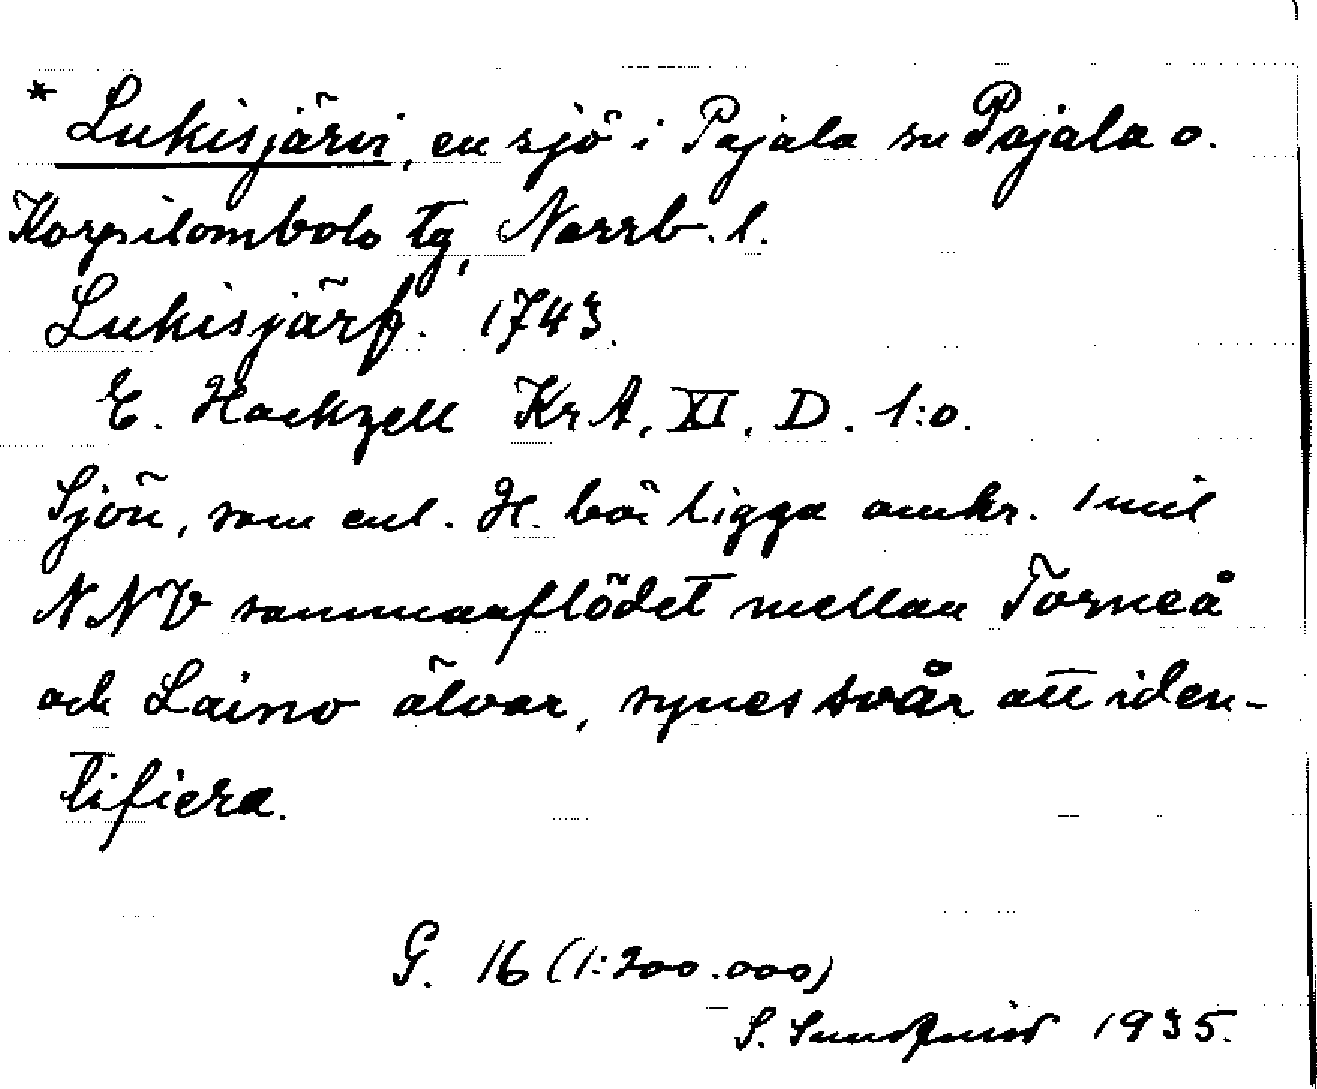 * Lukisjärvi, en sjö i Pajala sn Pajala o.
Korpilombolo tg, Norrb. l.
Lukisjärf. 1743.
E. Hackzell KrA, XI. D. 1:o.
Sjön, som enl. H. bör ligga omkr. 1 mil
NNV sammanflödet mellan Torneå
och Laino älvar, synes svår att iden-
tifiera.
G. 16 (1:200.000)
S. Sundqvist 1935.